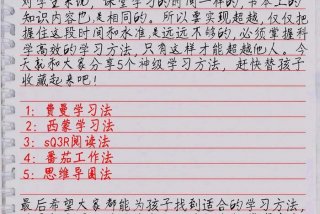 对学生来说，课堂学习的时间一样的，书本上的
知识内容也是相同的。所以要实现超越，仅仅把
握住这段时间和水准是远远不够的，必须掌握科
学高效的学习方法，只有这样才能超越他人。今
天就和大家分享5个神级学习方法，赶快替孩子
收藏起来吧！
1：费曼学习法
2：西蒙学习法
3：SQ3R阅读法
4：番茄工作法
5：思维导图法
最后希望大家都能为孩子找到适合的学习方法，